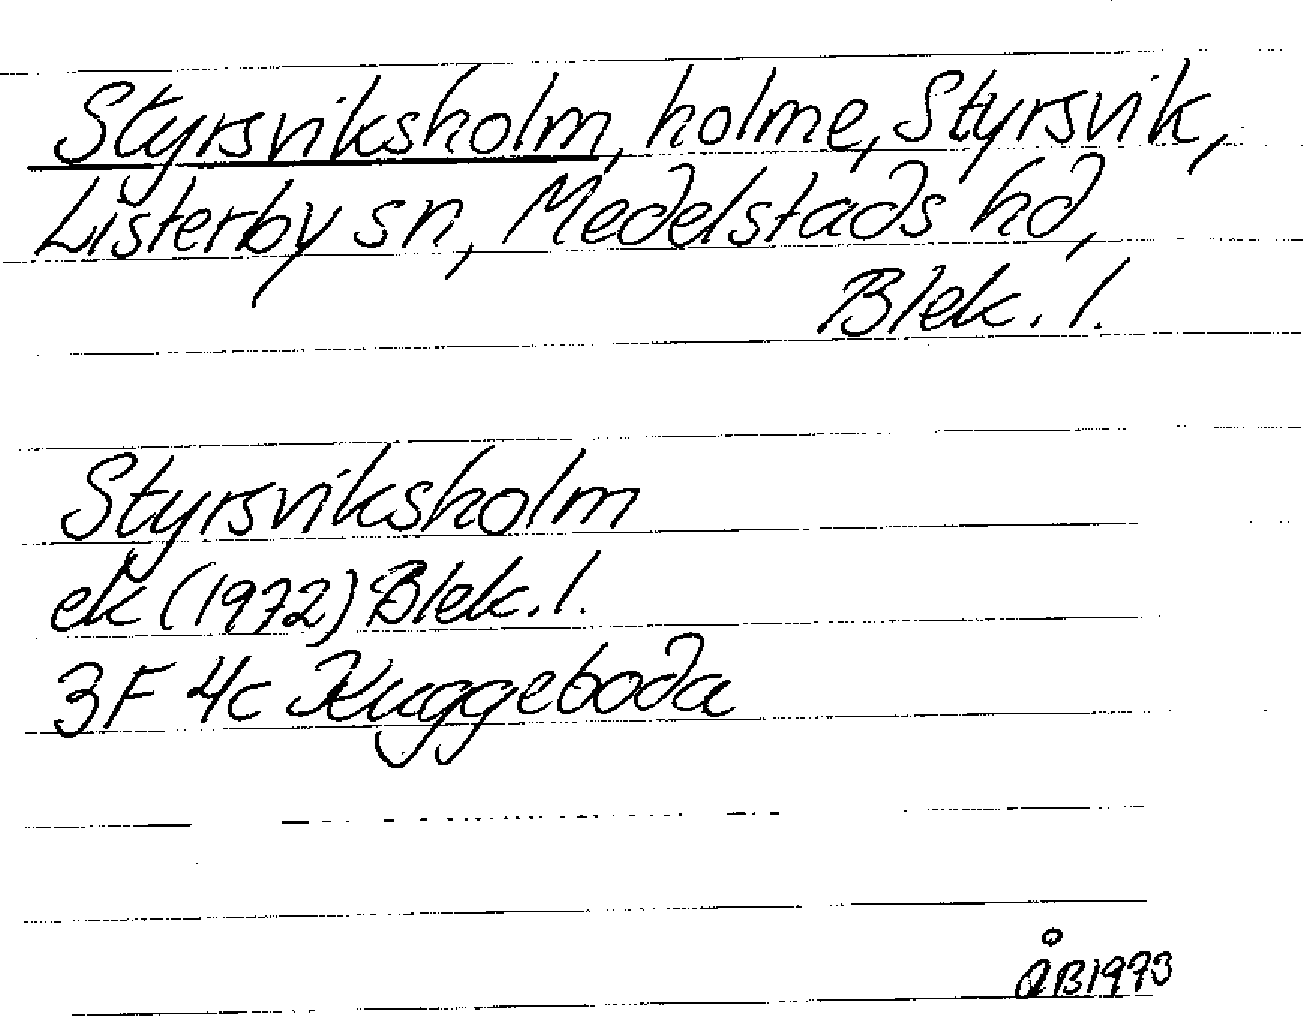 Styrsviksholm, holme, Styrsvik,
Listerby sn, Medelstads hd,
Blek. l.
Styrsviksholm
ek (1972) Blek. l.
3F 4c Kuggeboda
ÅB 1973